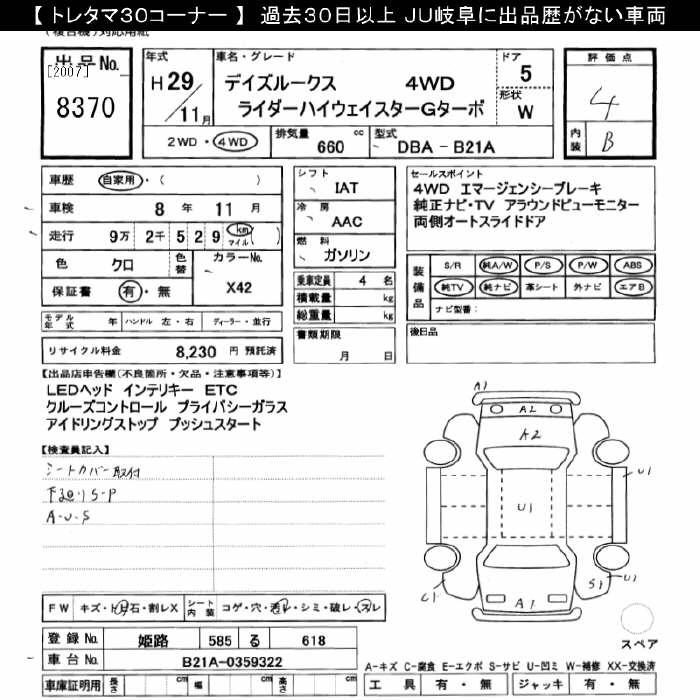 【 トレタマ30コーナー 】 過去30日以上 JU岐阜に出品歴がない車両
出品No. [2007] 8370
年式 H29/11月
車名・グレード デイズルークス 4WD
ライダーハイウェイスターGターボ
ドア 5
形状 W
評価点 4
内装 B
2WD・4WD 排気量 660 cc 型式 DBA - B21A
車歴 自家用・( )
車検 8年 11月
走行 9万 2千 5 2 9 km マイル ( )
色 クロ 色替 カラーNo. X42
保証書 有・無
シフト IAT
冷房 AAC
燃料 ガソリン
乗車定員 4 名
積載量 kg
総重量 kg
書類期限 月 日
モデル年式 年 ハンドル 左・右 ディーラー・並行
リサイクル料金 8,230 円 預託済
セールスポイント
4WD エマージェンシーブレーキ
純正ナビ・TV アラウンドビューモニター
両側オートスライドドア
装備品 S/R 純A/W P/S P/W ABS
純TV 純ナビ 革シート 外ナビ エアB
ナビ型番:
後日品
【出品店申告欄(不良箇所・欠品・注意事項等)】
LEDヘッド インテリキー ETC
クルーズコントロール プライバシーガラス
アイドリングストップ プッシュスタート
【検査員記入】
シートカバー取付
下廻りS-P
A-U-S
A1
A2
A2
U1
U1
C1
A1
S1
U1
スペア
FW キズ・トビ石・割レX シート内装 コゲ・穴・汚レ・シミ・破レ・スレ
登録No. 姫路 585 る 618
車台No. B21A-0359322
車庫証明用 長さ cm 幅 cm 高さ cm
A-キズ C-腐食 E-エクボ S-サビ U-凹ミ W-補修 XX-交換済
工具 有・無 ジャッキ 有・無